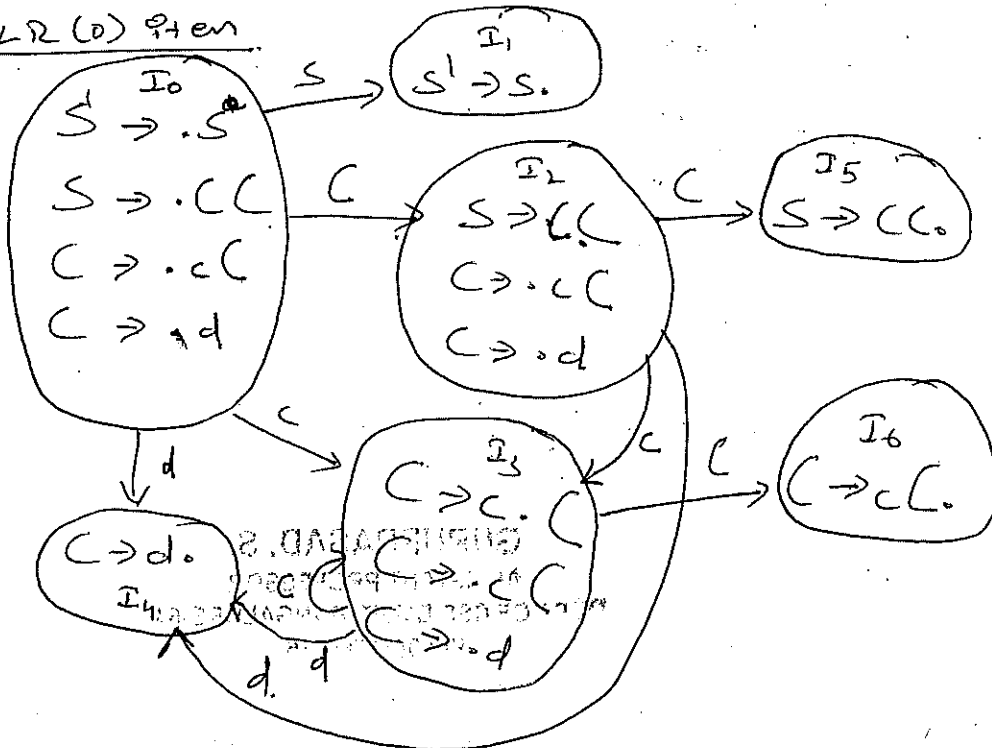 LR (0) item
I0
S' → .S
S → .CC
C → .cC
C → .d
S
I1
S' → S.
C
I2
S → C.C
C → .cC
C → .d
C
I5
S → CC.
c
d
c
I3
C → c.C
C → .cC
C → .d
C
I6
C → cC.
C → d.
I4
c
d
d.